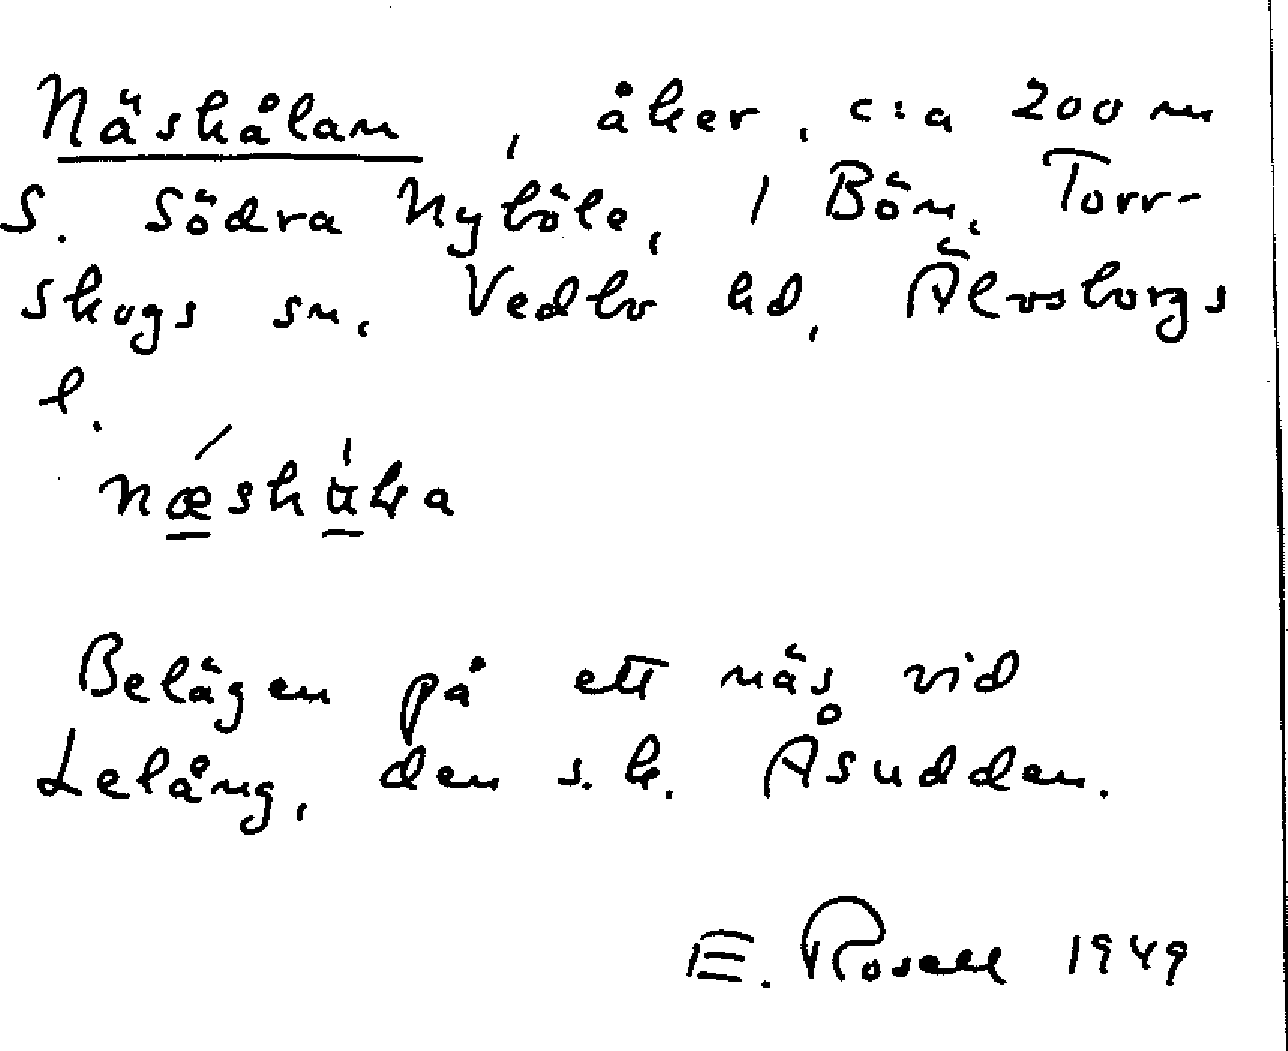 Näshålan, åker, c:a 200 m
S. Södra Nyböle, 1 Bön, Torr-
skogs sn. Vedbo hd, Älvsborgs
l.
Belägen på ett näs vid
Lelång, den s.k. Åsudden.
E. Rosell 1949